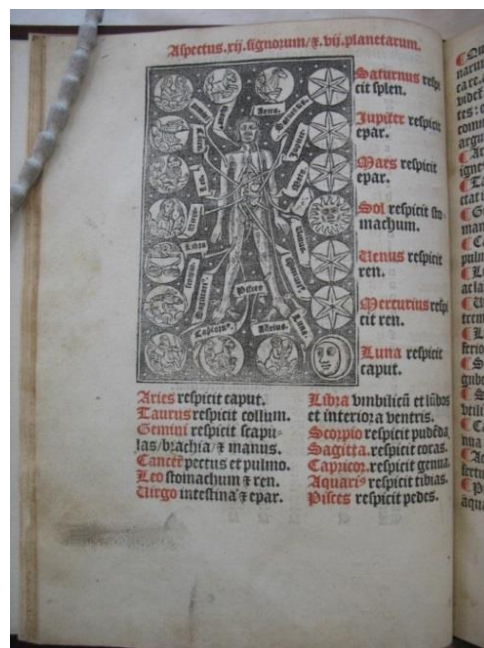 Aspectus .xij. signorum/ ⁊ .vij. planetarum.
Saturnus respi
cit splen.
Jupiter respicit
epar.
Mars respicit
epar.
Sol respicit sto-
machum.
Venus respicit
ren.
Mercurius respi
cit ren.
Luna respicit
caput.
Saturnus.
Jupiter.
Mars.
Venus.
Leo
Virgo
Libra
Sagittari⁹.
Capicor⁹.
Pisces
Luna.
Aries respicit caput.
Taurus respicit collum.
Gemini respicit scapu-
las/brachia/ ⁊ manus.
Cancer pectus et pulmo.
Leo stomachum ⁊ ren.
Virgo intestina ⁊ epar.
Libra vmbilicū et lūbos
et interiora ventris.
Scorpio respicit pudēda.
Sagitta. respicit coxas.
Capricor. respicit genua.
Aquari⁹ respicit tibias.
Pisces respicit pedes.